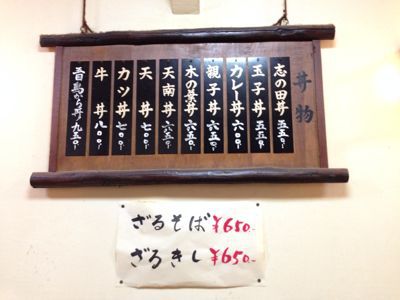 丼物
志の田丼 五五〇-
玉子丼 五五〇-
カレー丼 六〇〇-
親子丼 六五〇-
木の葉丼 六五〇-
天南丼 六五〇-
天丼 七〇〇-
カツ丼 七〇〇-
牛丼 八〇〇-
若鳥から丼 九五〇-
ざるそば ¥650-
ざるきし ¥650-